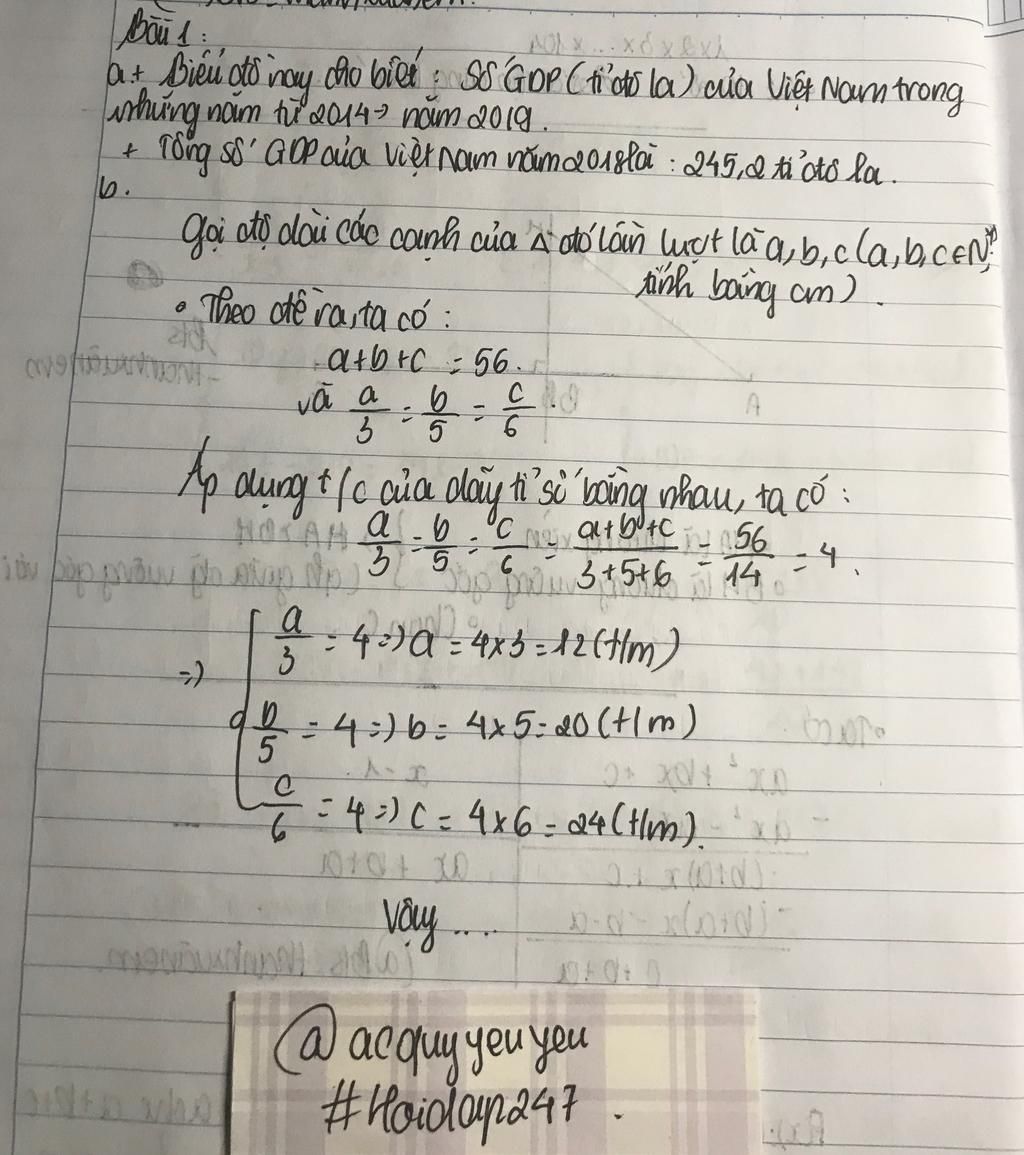 Bài 1:
a + Biểu đồ này cho biết: Số GDP (tỉ đô la) của Việt Nam trong
những năm từ 2014 → năm 2019.
+ Tổng số GDP của Việt Nam năm 2018 là: 245,2 tỉ đô la.
b.
Gọi độ dài các cạnh của Δ đó lần lượt là a, b, c (a, b, c ∈ N*,
tính bằng cm).
• Theo đề ra, ta có:
a+b+c = 56.
và a/3 = b/5 = c/6.
Áp dụng t/c của dãy tỉ số bằng nhau, ta có:
a/3 = b/5 = c/6 = (a+b+c)/(3+5+6) = 56/14 = 4.
a/3 = 4 => a = 4×3 = 12 (t/m)
=> b/5 = 4 => b = 4×5 = 20 (t/m)
c/6 = 4 => c = 4×6 = 24 (t/m).
Vậy....
@acquyyeuyeu
#Hoidap247.